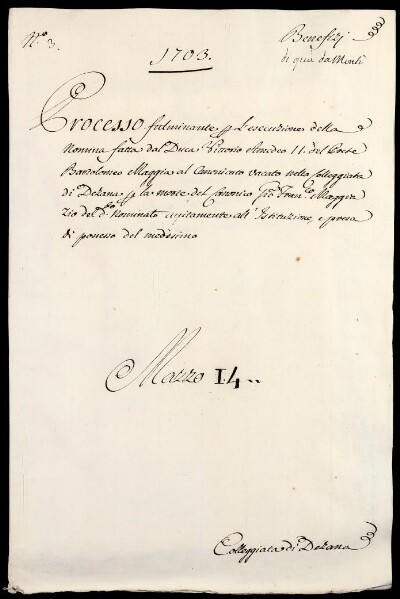 N.° 3.
Benefizj
di qua da Monti
1703.
Processo fulminante p l'esecuzione della
Nomina fatta dal Duca Vittorio Amedeo II. del Prete
Bartolomeo Maggia al Canonicato vacato nella Colleggiata
di Dezana p la morte del Canonico Gio: Fran.co Maggia
zio del d.° Nominato unitamente all'Istituzione, e presa
di possesso del medesimo
Mazzo 14..
Colleggiata di Dezana